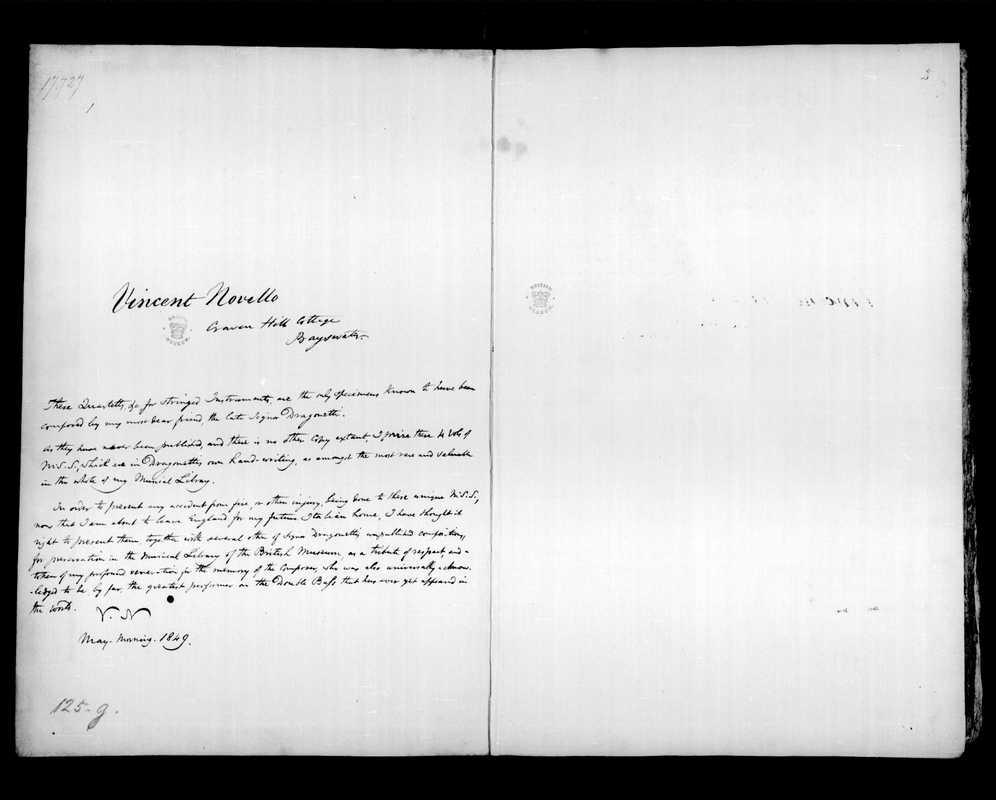 17.727
1
2
Vincent Novello
Craven Hill Cottage
Bayswater
BRITISH
MUSEUM
BRITISH
MUSEUM
These Quartetts, &c for Stringed Instruments, are the only specimens known to have been
composed by my most dear friend, the late Signor Dragonetti.
As they have never been published, and there is no other Copy extant, I prize these 4 Vols of
M.S.S, which are in Dragonetti's own hand-writing, as amongst the most rare and valuable
in the whole of my Musical Library.
In order to prevent any accident from fire, or other injury, being done to these unique M.S.S,
now that I am about to leave England for my future Italian home, I have thought it
right to present them, together with several other of Signor Dragonetti's unpublished compositions,
for preservation in the Musical Library of the British Museum, as a tribute of respect, and
token of my profound veneration for the memory of the Composer, who was also universally acknow-
-ledged to be, by far, the greatest performer on the Double Bass that has ever yet appeared in
the world.
V. N
May-Morning. 1849.
125-g.